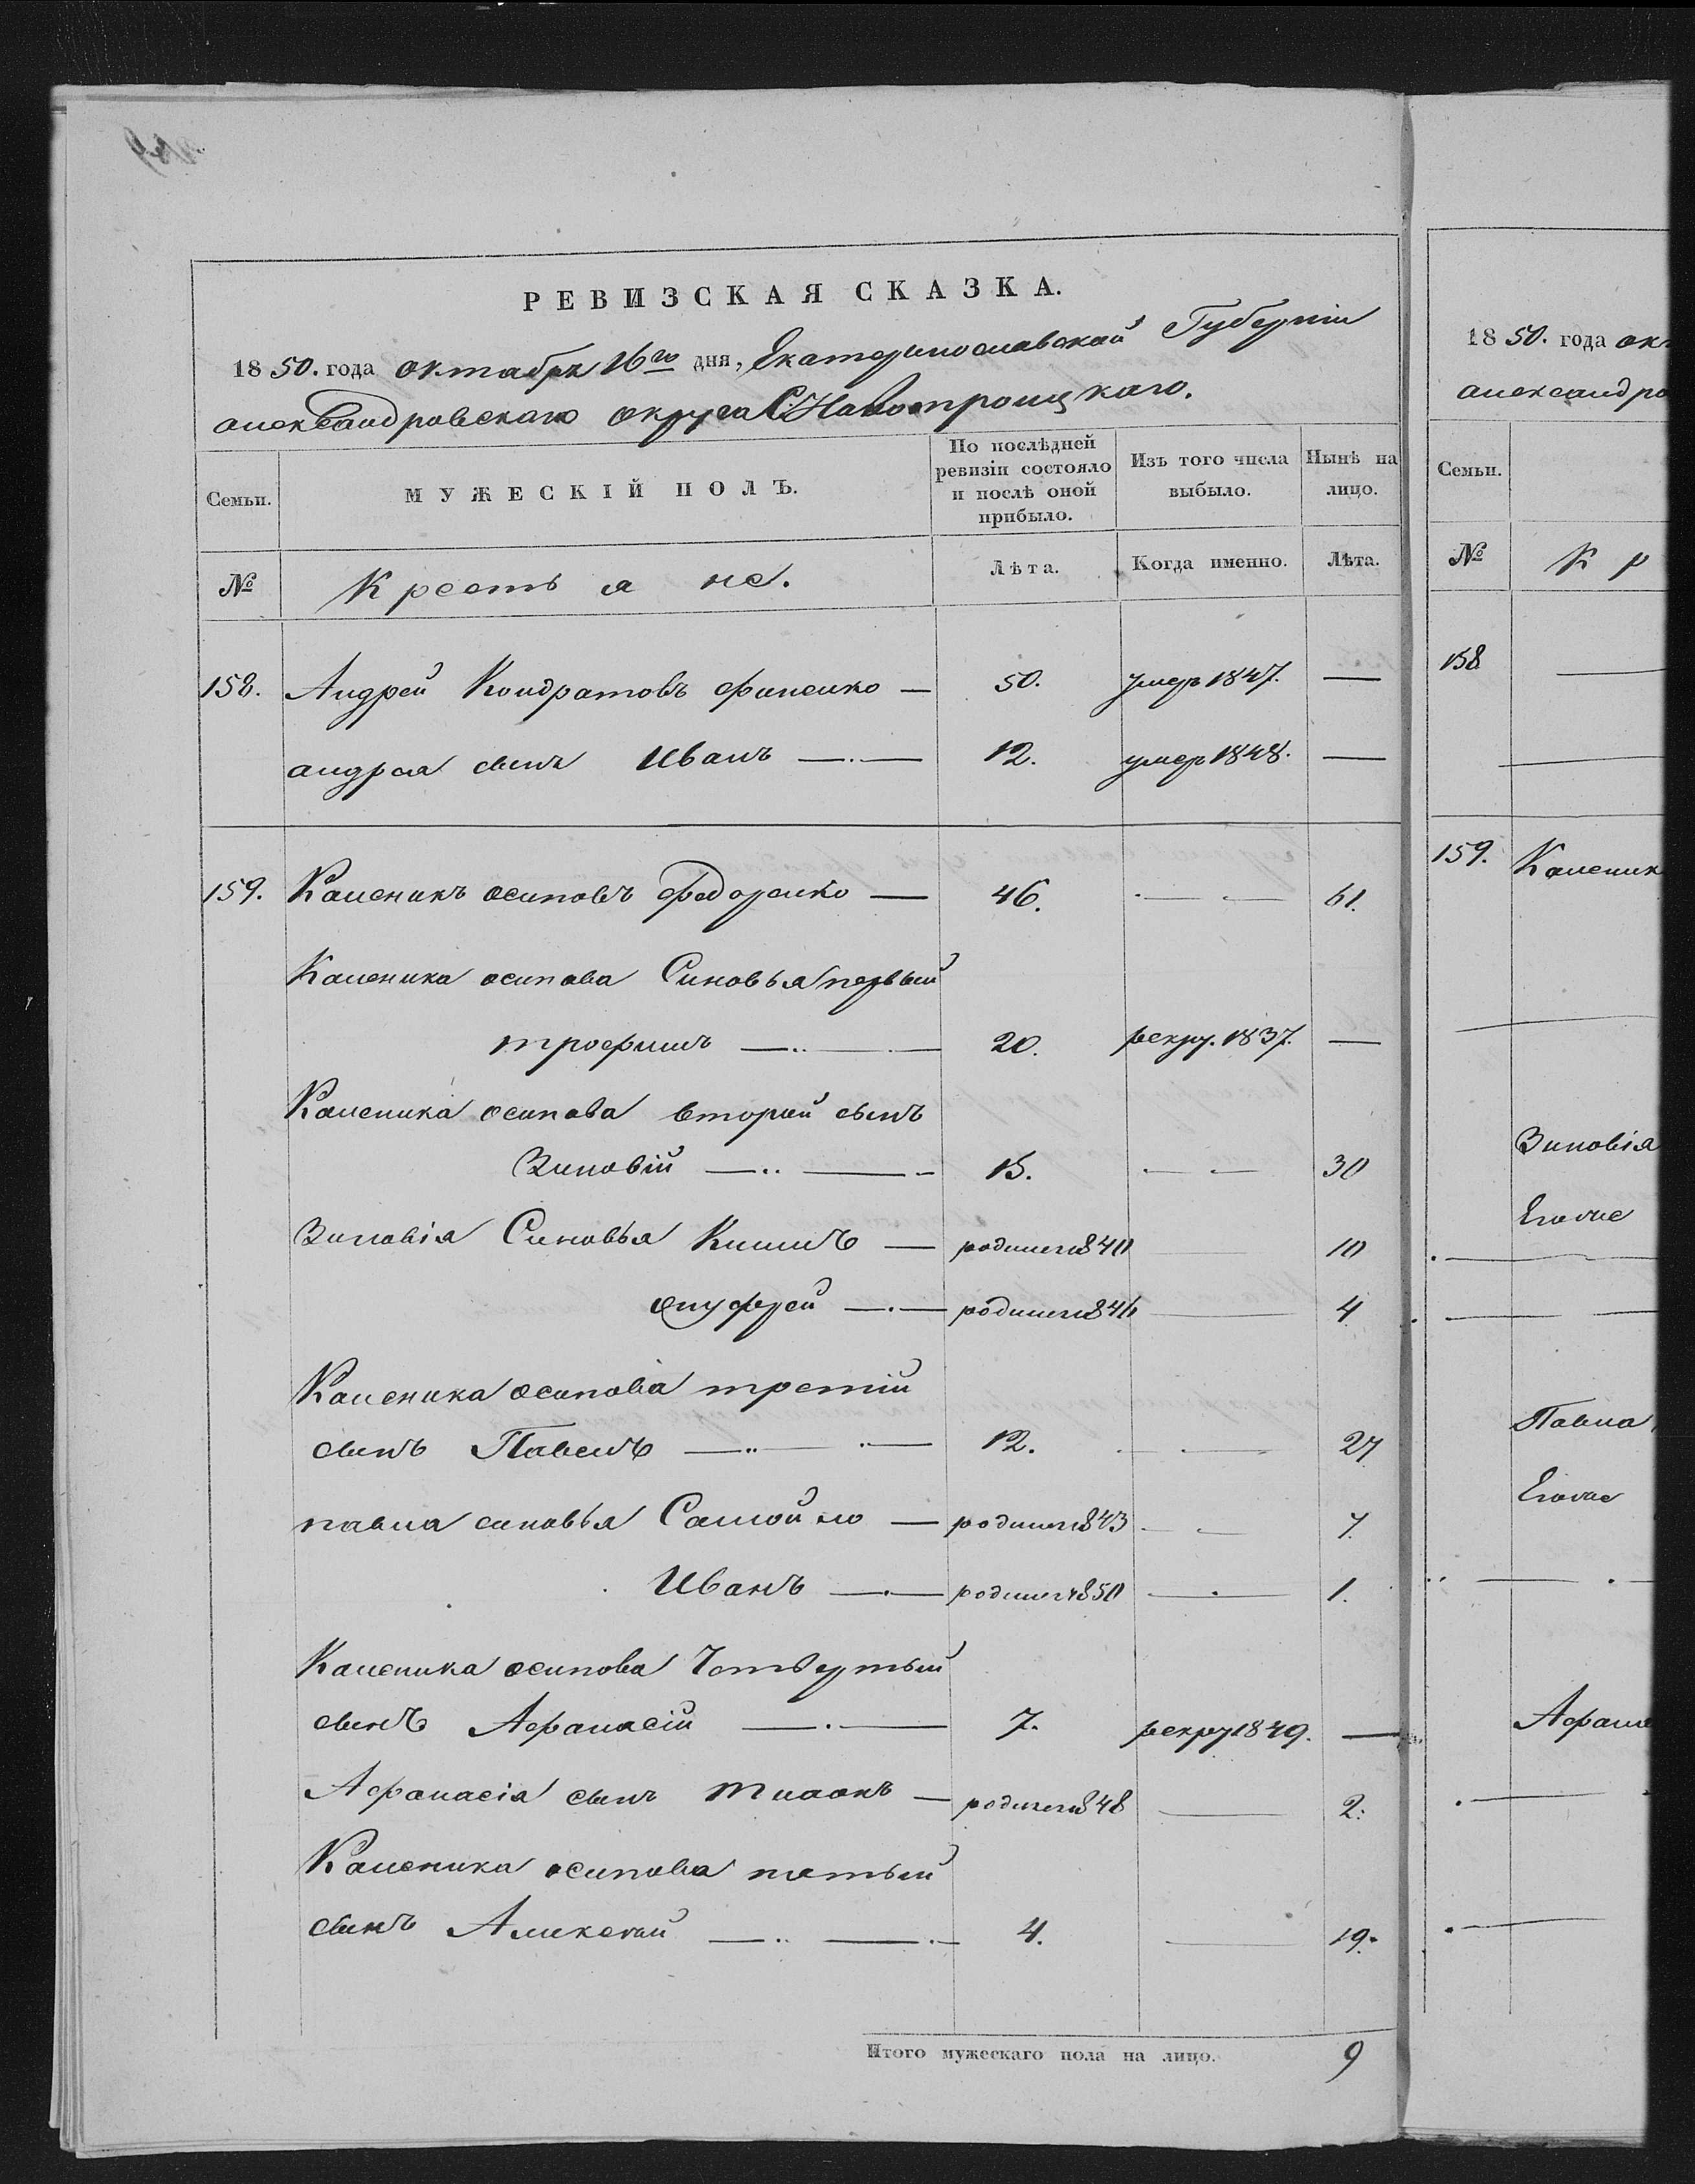 РЕВИЗСКАЯ СКАЗКА.
1850. года октября 16го дня, Екатеринославской Губерніи
александровскаго округа С. Новотроицкаго.
Семьи.
МУЖЕСКІЙ ПОЛЪ.
По послѣдней ревизіи состояло и послѣ оной прибыло.
Изъ того числа выбыло.
Нынѣ на лицо.
№
Крестьяне.
Лѣта.
Когда именно.
Лѣта.
158. Андрей Кондратовъ Фипенко — 50. умеръ 1847. —
андрея сынъ Иванъ — 12. умер 1848. —
159. Каленикъ осиповъ Федоренко — 46. — 61.
Каленика осипова Синовья первый
трофимъ — 20. рекру. 1837. —
Каленика осипова вторый сынъ
Зиновій — 15. — 30
Зиновія Синовья Климъ — родился 1840 — 10
онуфрей — родился 1846 — 4
Каленика осипова третій
сынъ Павелъ — 12. — 27
павла синовья Самойло — родился 1843 — 7.
Иванъ — родился 1850 — 1.
Каленика осипова Четвертый
сынъ Афанасій — 7. рекру 1849. —
Афанасія сынъ Тихонъ — родился 1848 — 2.
Каленика осипова пятый
сынъ Алексей — 4. — 19.
Итого мужескаго пола на лицо. 9
1850. года ок
александро
Семьи.
№
К р
158
159. Каленик
Зиновія
Павла
Афана